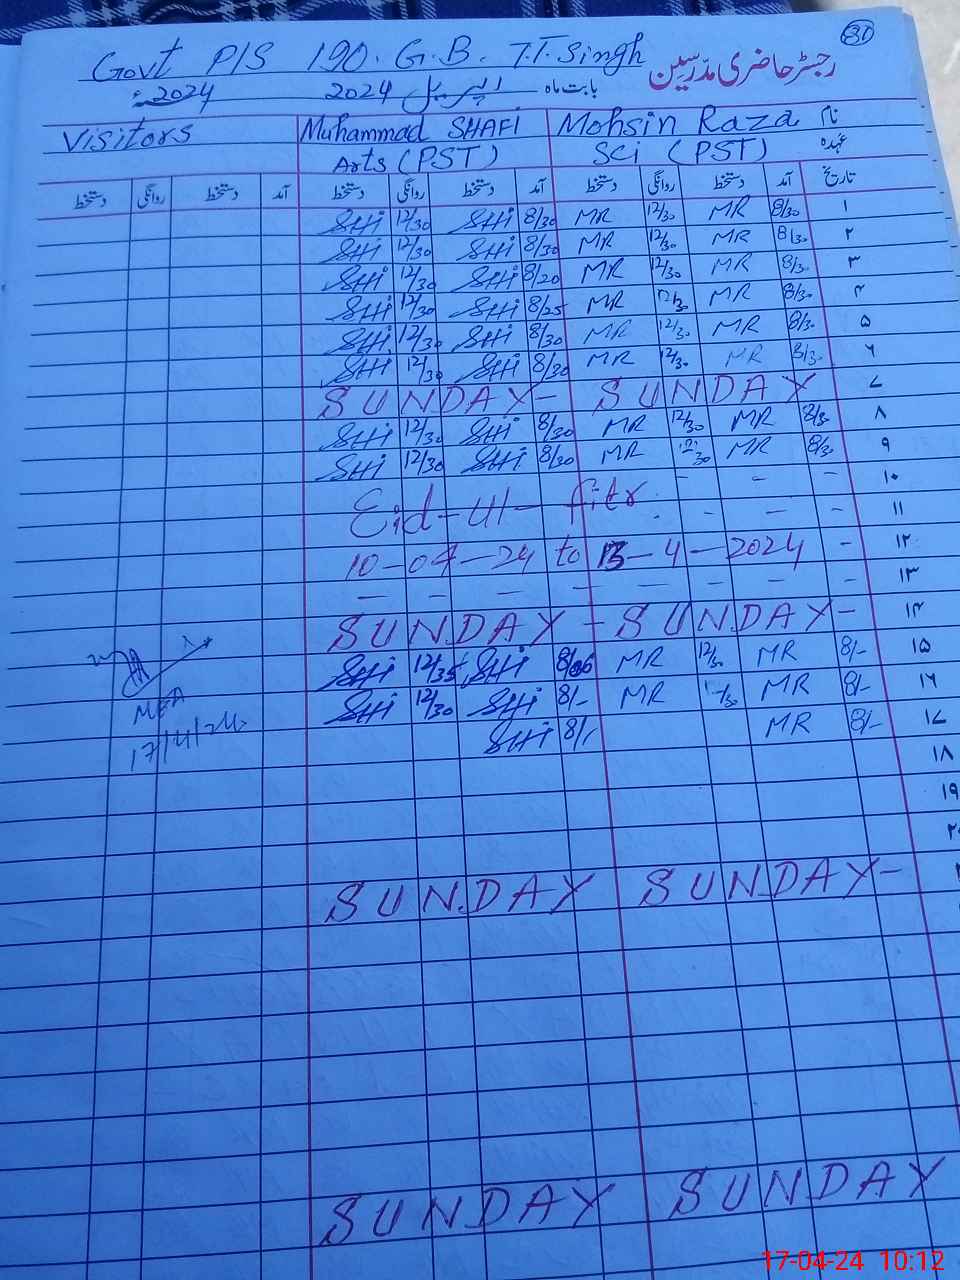 31
Govt P/S 190. G.B. T.T.Singh
رجسٹر حاضری مدرسین
بابت ماہ اپریل 2024 2024ء
نام Mohsin Raza Muhammad SHAFI Visitors
عہدہ Sci (PST) Arts (PST)
تاریخ آمد دستخط روانگی دستخط آمد دستخط روانگی دستخط آمد دستخط روانگی دستخط
۱ 8/30 MR 12/30 MR 8/30 SHi 12/30 SHi
۲ 8/30 MR 12/30 MR 8/30 SHi 12/30 SHi
۳ 8/30 MR 12/30 MR 8/20 SHi 12/30 SHi
۴ 8/30 MR 12/30 MR 8/25 SHi 12/30 SHi
۵ 8/30 MR 12/30 MR 8/30 SHi 12/30 SHi
۶ 8/30 MR 12/30 MR 8/30 SHi 12/30 SHi
۷ SUNDAY- SUNDAY
۸ 8/30 MR 12/30 MR 8/30 SHi 12/30 SHi
۹ 8/30 MR 12/30 MR 8/30 SHi 12/30 SHi
۱۰
۱۱ Eid-Ul-fitr
۱۲ 10-04-24 to 13-4-2024
۱۳
۱۴ SUNDAY - SUNDAY-
۱۵ 8/- MR 12/30 MR 8/06 SHi 12/35 SHi
۱۶ 8/- MR MR 8/- SHi 12/30 SHi
۱۷ 8/- MR 8/- SHi
MEA
17/4/24
۱۸
۱۹
۲۰
SUNDAY SUNDAY-
SUNDAY SUNDAY
17-04-24 10:12